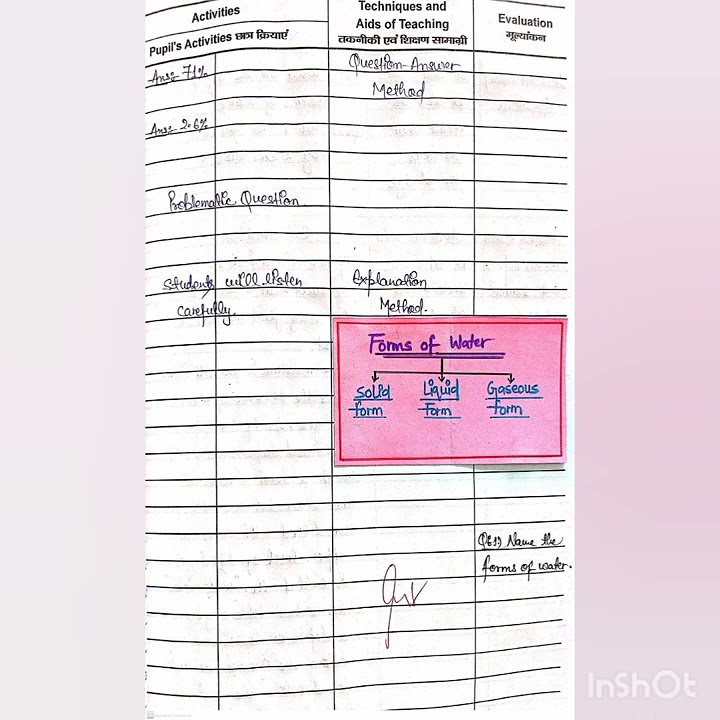 Activities
Pupil's Activities छात्र क्रियाएं
Techniques and
Aids of Teaching
तकनीकी एवं शिक्षण सामाग्री
Evaluation
मूल्यांकन
Ans:- 71%
Question-Answer
Method
Ans:- 2.6%
Problematic Question
Students will listen
carefully.
Explanation
Method.
Forms of Water
Solid
form
Liquid
Form
Gaseous
form
Name the
forms of water.
InShOt